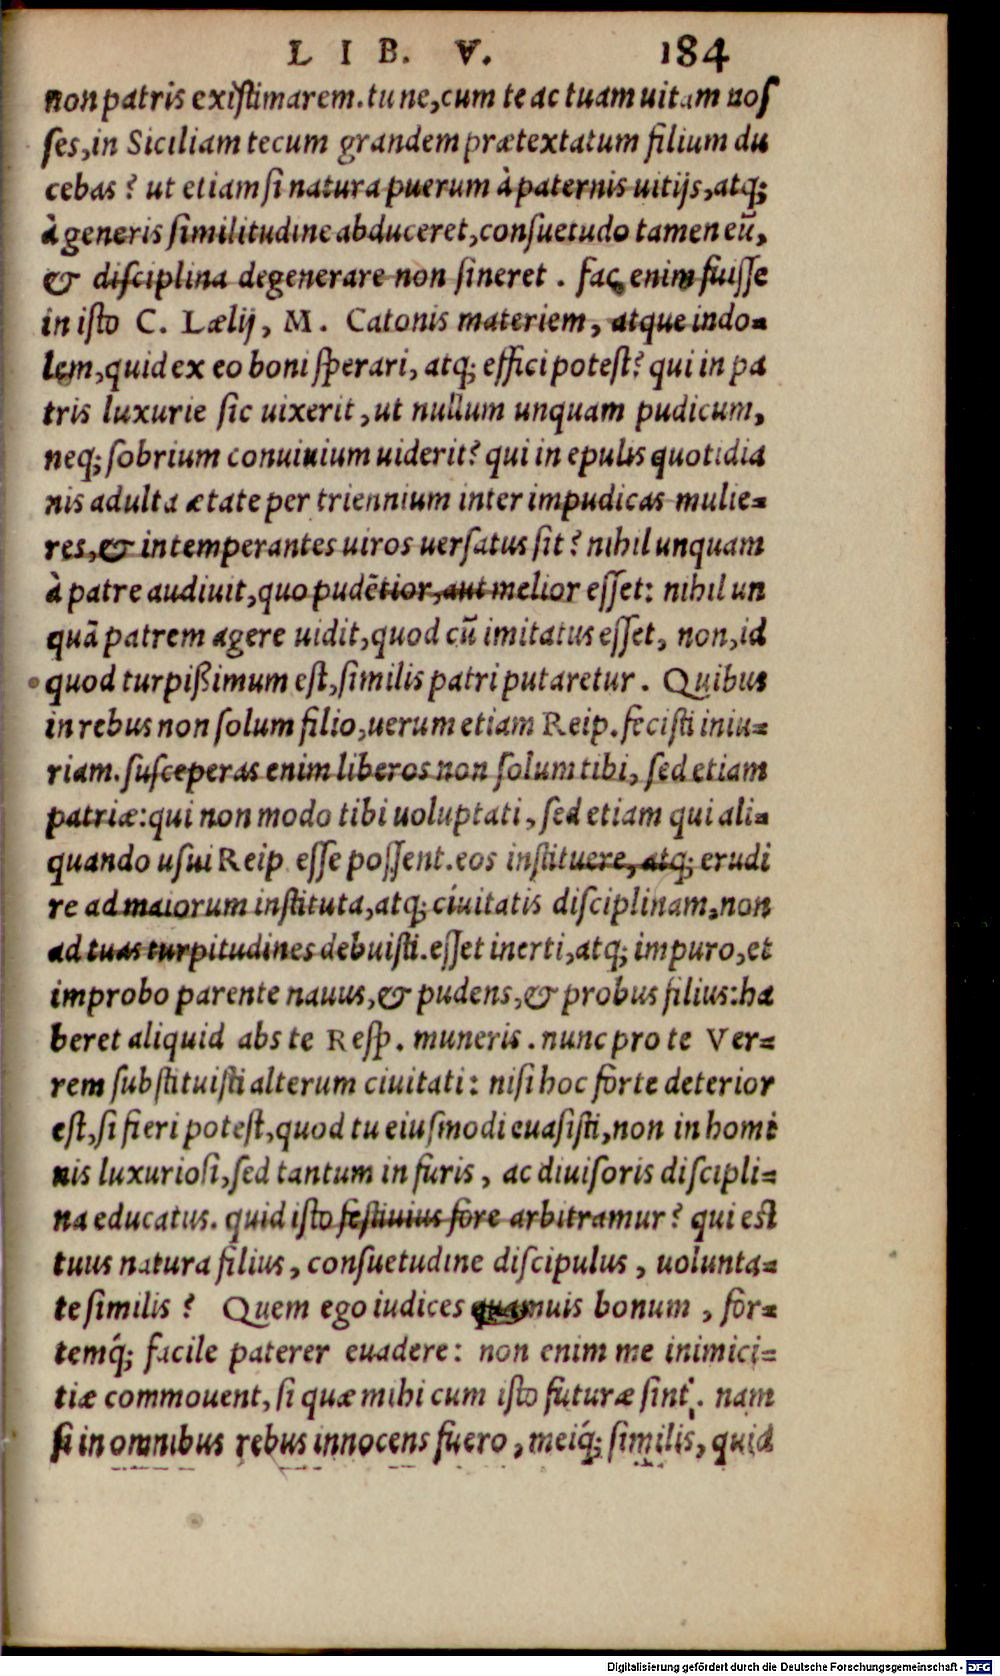 LIB. V. 184
non patris existimarem. tu ne, cum te ac tuam uitam nos
ses, in Siciliam tecum grandem prætextatum filium du
cebas? ut etiam si natura puerum à paternis uitijs, atq;
à generis similitudine abduceret, consuetudo tamen eū,
& disciplina degenerare non sineret. fac enim fuisse
in isto C. Lælij, M. Catonis materiem, atque indo-
lem, quid ex eo boni sperari, atq; effici potest? qui in pa
tris luxurie sic uixerit, ut nullum unquam pudicum,
neq; sobrium conuiuium uiderit? qui in epulis quotidia
nis adulta ætate per triennium inter impudicas mulie-
res, & intemperantes uiros uersatus sit? nihil unquam
à patre audiuit, quo pudētior, aut melior esset: nihil un
quā patrem agere uidit, quod cū imitatus esset, non, id
quod turpißimum est, similis patri putaretur. Quibus
in rebus non solum filio, uerum etiam Reip. fecisti iniu-
riam. susceperas enim liberos non solum tibi, sed etiam
patriæ: qui non modo tibi uoluptati, sed etiam qui ali-
quando usui Reip. esse possent. eos instituere, atq; erudi
re ad maiorum instituta, atq; ciuitatis disciplinam, non
ad tuas turpitudines debuisti. esset inerti, atq; impuro, et
improbo parente nauus, & pudens, & probus filius: ha
beret aliquid abs te Resp. muneris. nunc pro te Ver-
rem substituisti alterum ciuitati: nisi hoc forte deterior
est, si fieri potest, quod tu eiusmodi euasisti, non in homi
nis luxuriosi, sed tantum in furis, ac diuisoris discipli-
na educatus. quid isto festiuius fore arbitramur? qui est
tuus natura filius, consuetudine discipulus, uolunta-
te similis? Quem ego iudices quamuis bonum, for-
temq́; facile paterer euadere: non enim me inimici-
tiæ commouent, si quæ mihi cum isto futuræ sint. nam
si in omnibus rebus innocens fuero, meiq́; similis, quid
Digitalisierung gefördert durch die Deutsche Forschungsgemeinschaft - DFG